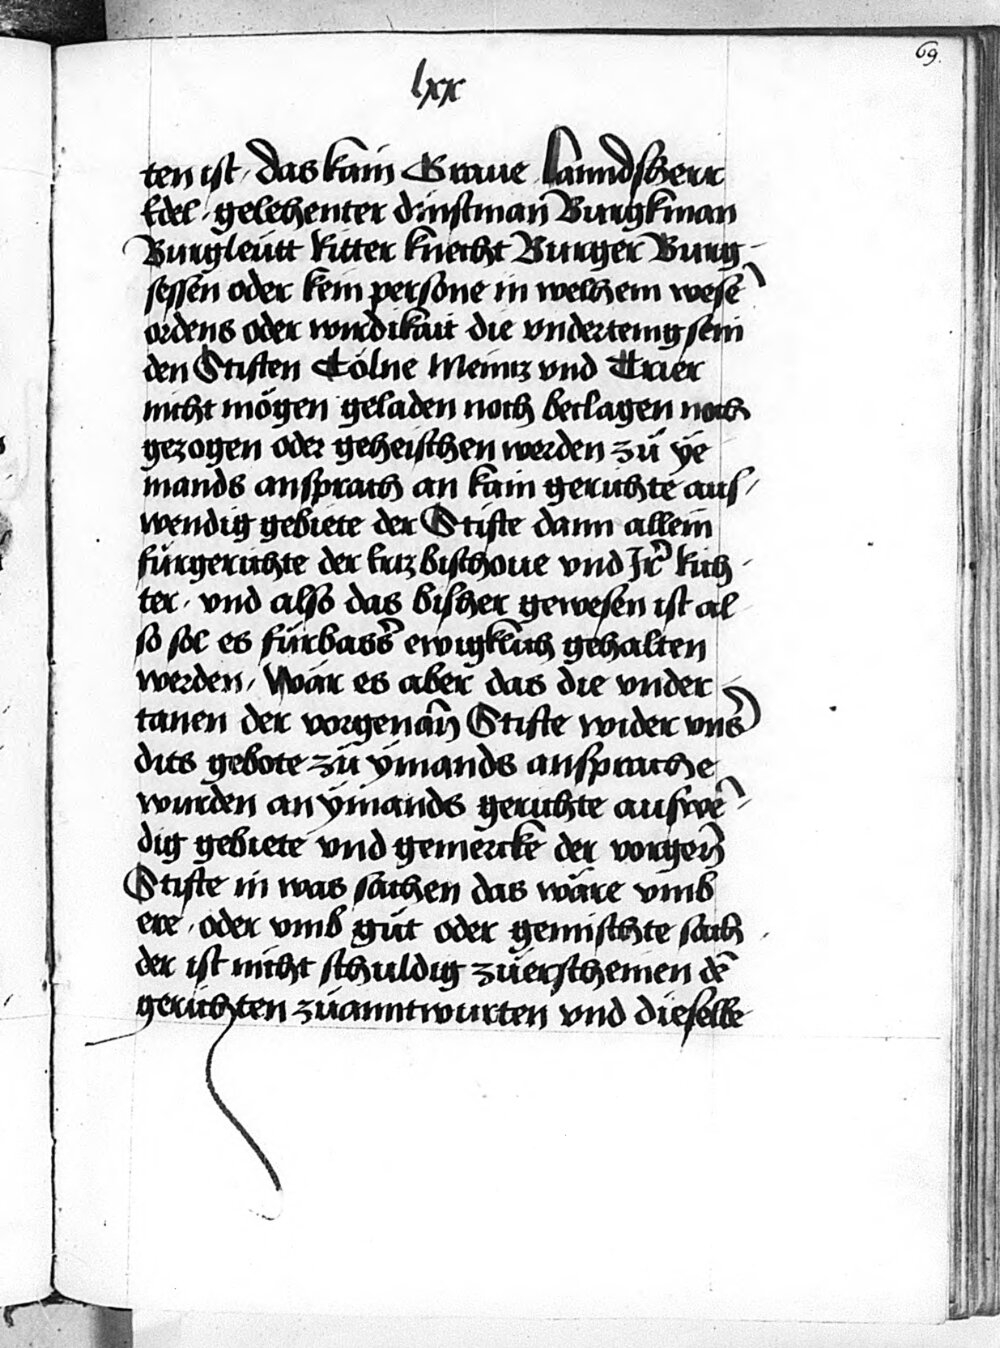 69.
lxx
ten ist / das kain Graue Lanndsherr
Edel / gelehenter dinstman Burgkman
Burgleütt Ritter knecht Burger Burg-
sessen oder kein persone in welchem wesē
ordens oder wirdikait die vndertenig sein
den Stiften Cölne Meintz vnd Trier
nicht mögen geladen noch beclagen noch
gezogen oder geheischen werden zü ye
mands ansprach an kain gerichte aus/
wendig gebiete der Stifte dann allein
fürgerichte der Ertzbischoue vnd Jr̄ Rich-
ter / vnd also das bisher gewesen ist al-
so sol es fürbass̄ ewigklich gehalten
werden / Wär es aber das die vnder
tanen der vorgenan̄ Stifte wider vns̄
dits gebote zü ÿmands ansprache
wurden an ÿmands gerichte auswē-
dig gebiete vnd gemercke der vorgen̄
Stifte in was sachen das wäre vmb
ere / oder vmb güt oder gemischte sach
der ist nicht schuldig züerscheinen dē
gerichten züanntwurten vnd dieselbe